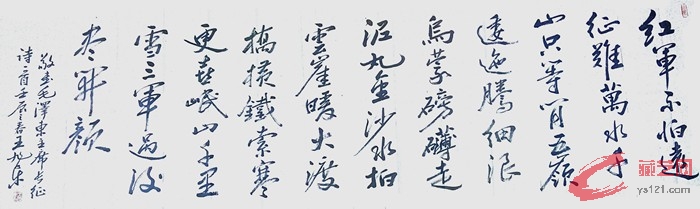 紅軍不怕遠
征難萬水千
山只等閒五嶺
逶迤騰細浪
烏蒙磅礴走
泥丸金沙水拍
雲崖暖大渡
橋橫鐵索寒
更喜岷山千里
雪三軍過後
尽開顏
敬書毛澤東主席长征
诗一首壬辰春王
ys121.com